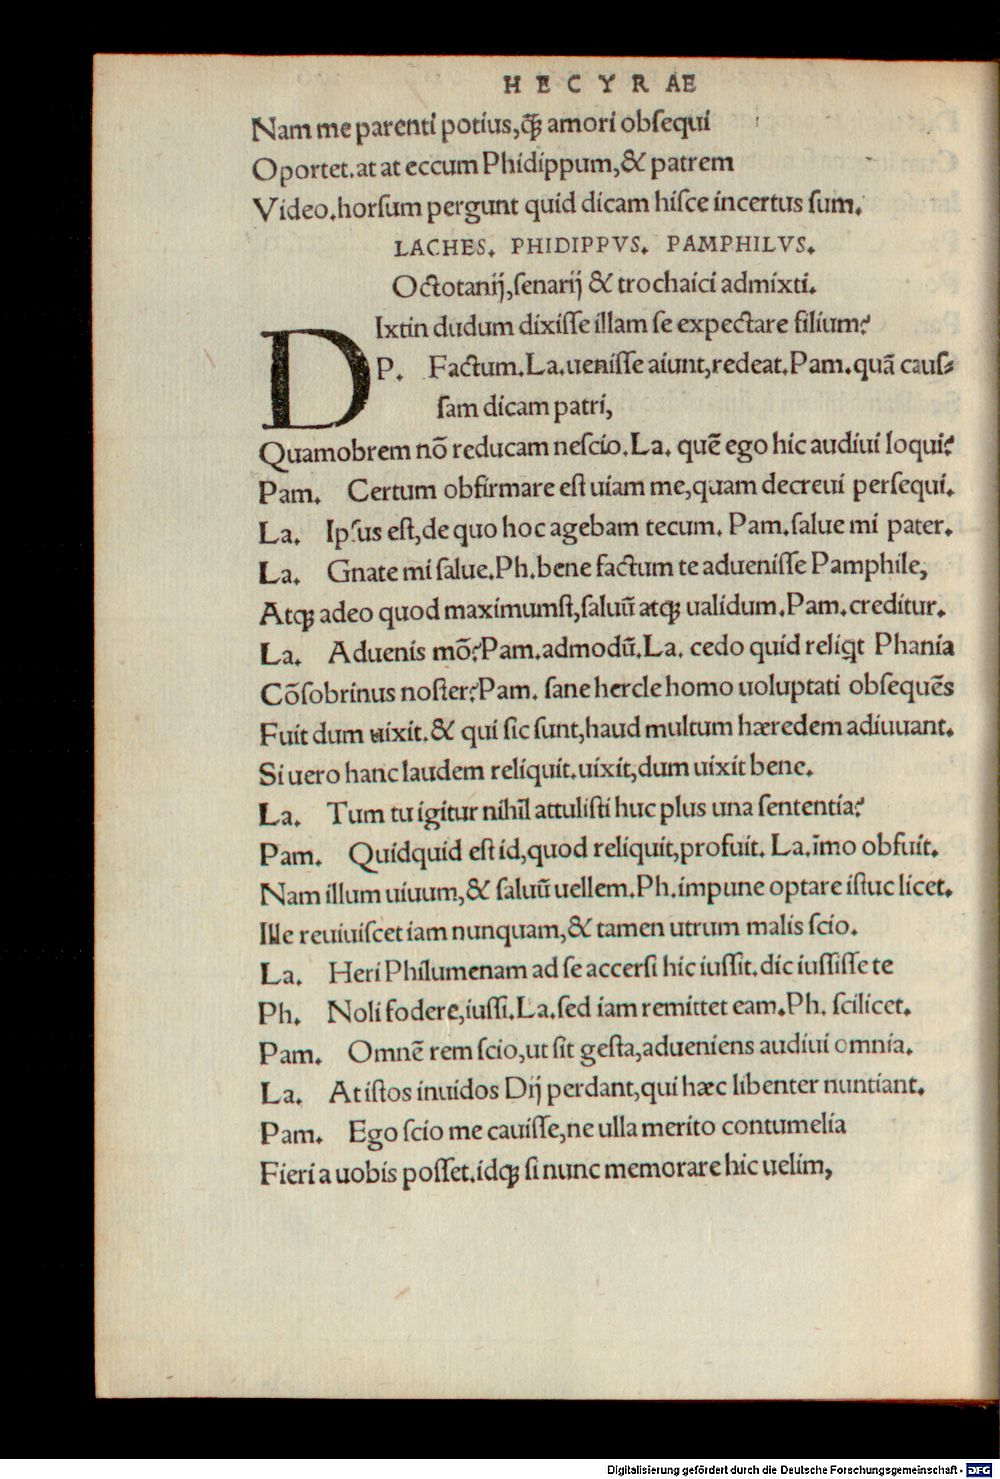 HECYRAE
Nam me parenti potius,q̃ꝫ amori obſequi
Oportet.at at eccum Phidippum,& patrem
Video.horſum pergunt quid dicam hiſce incertus ſum.
LACHES. PHIDIPPVS. PAMPHILVS.
Octotanij,ſenarij & trochaici admixti.
DIxtin dudum dixiſſe illam ſe expectare filium?
P. Factum.La.ueniſſe aiunt,redeat.Pam.quã cauſ-
ſam dicam patri,
Quamobrem nõ reducam neſcio.La. quẽ ego hic audiui loqui?
Pam. Certum obfirmare eſt uiam me,quam decreui perſequi.
La. Ipſus eſt,de quo hoc agebam tecum. Pam.ſalue mi pater.
La. Gnate mi ſalue.Ph.bene factum te adueniſſe Pamphile,
Atqꝫ adeo quod maximumſt,ſaluũ atqꝫ ualidum.Pam.creditur.
La. Aduenis mõ?Pam.admodũ.La. cedo quid reliꝗt Phania
Cõſobrinus noſter?Pam. ſane hercle homo uoluptati obſequẽs
Fuit dum uixit.& qui ſic ſunt,haud multum hæredem adiuuant.
Si uero hanc laudem reliquit.uixit,dum uixit bene.
La. Tum tu igitur nihil attuliſti huc plus una ſententia?
Pam. Quidquid eſt id,quod reliquit,profuit. La.ĩmo obfuit.
Nam illum uiuum,& ſaluũ uellem.Ph.impune optare iſtuc licet.
Ille reuiuiſcet iam nunquam,& tamen utrum malis ſcio.
La. Heri Philumenam ad ſe accerſi hic iuſſit.dic iuſſiſſe te
Ph. Noli fodere,iuſſi.La.ſed iam remittet eam.Ph. ſcilicet.
Pam. Omnẽ rem ſcio,ut ſit geſta,adueniens audiui omnia.
La. At iſtos inuidos Dij perdant,qui hæc libenter nuntiant.
Pam. Ego ſcio me cauiſſe,ne ulla merito contumelia
Fieri a uobis poſſet.idqꝫ ſi nunc memorare hic uelim,
Digitalisierung gefördert durch die Deutsche Forschungsgemeinschaft - DFG